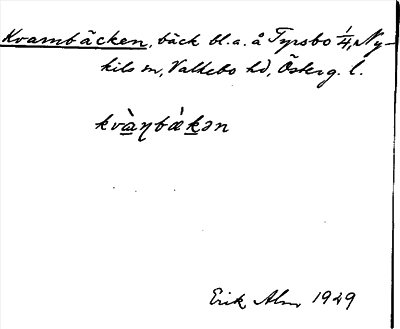 Kvarnbäcken, bäck bl. a. å Tyrsbo 1/4, Ny-
kils sn, Valkebo hd, Österg. l.
kvà̱ŋbǽḵən
Erik Alm 1929